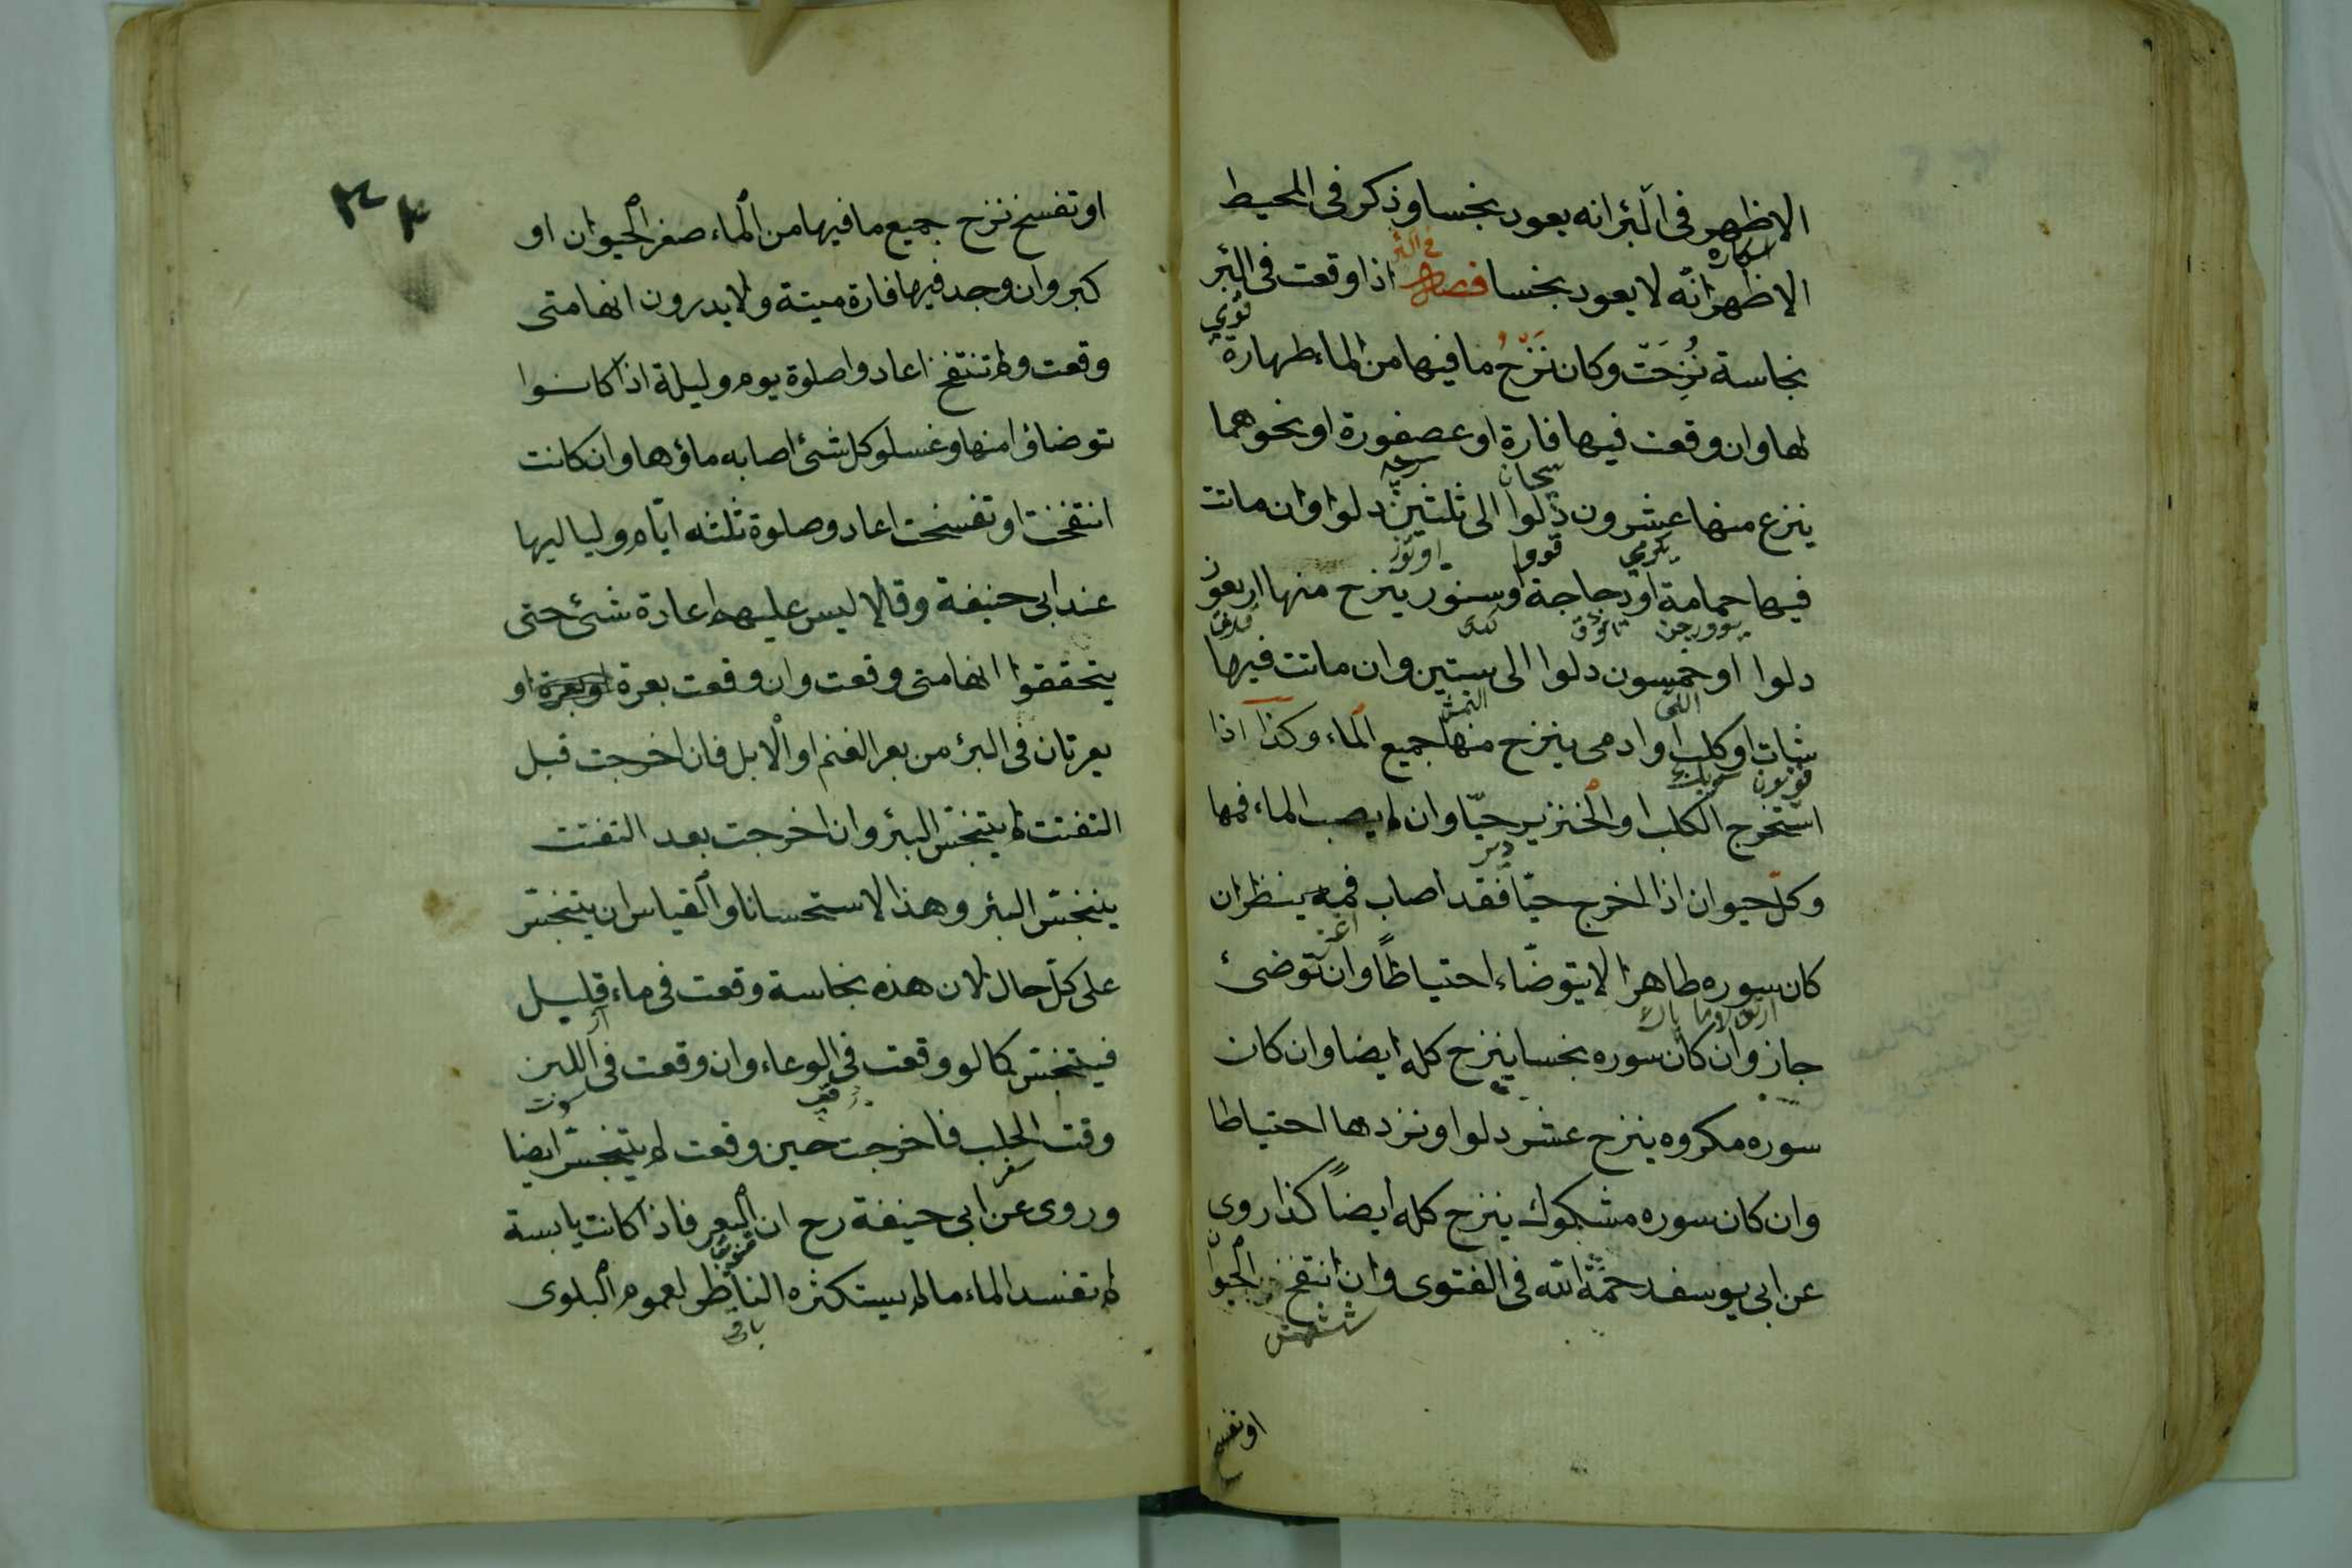 الاظهر فى البئر انه يعود نجسا وذكر فى المحيط
الاظهر انّه لا يعود نجسا فصل فى البئر اذا وقعت فى البئر
نجاسة نُزِحَتْ وكان نَزْحُ ما فيها من الماء طهارة
لها وان وقعت فيها فارة او عصفورة او نحوهما
ينزع منها عشرون دلوا الى ثلثين دلوا وان ماتت
فيها حمامة او دجاجة او سنور ينزح منها اربعون
دلوا او خمسون دلوا الى ستين وان ماتت فيها
شات او كلب او ادمى ينزح منها جميع الماء وكذا اذا
استخرج الكلب او الخنزير حيّا وان لم يصب الماء فمها
وكلّ حيوان اذا اخرج حيّا فقد اصاب فمه ينظر ان
كان سوره طاهرا لا يتوضّاء احتياطًا وان توضئ
جاز وان كان سوره نجسا ينزح كله ايضا وان كان
سوره مكروه ينزح عشر دلوا ونزدها احتياطا
وان كان سوره مشكوك ينزح كله ايضاً كذا روى
عن ابى يوسف رحمة الله فى الفتوى وان انتفخ الحيوان
او تفسخ
او تفسخ نزح جميع ما فيها من الماء صغر الحيوان او
كبر وان وجد فيها فارة ميتة ولا يدرون انها متى
وقعت ولم تنتفخ اعادوا صلوة يوم وليلة اذا كانوا
توضاؤا منها وغسلو كل شئ اصابه ماؤها وان كانت
انتفخت او تفسخت اعادو صلوة ثلثه ايّام ولياليها
عند ابى حنيفة وقالا ليس عليهم اعادة شئ حتى
يتحققوا انها متى وقعت وان وقعت بعرة او بعرة او
بعرتان فى البئر من بعر الغنم او الابل فان اخرجت قبل
التفتت لم يتنجّس البئر وان اخرجت بعد التفتت
يتنجّس البئر وهذا الاستحسانا والقياس ان يتنجّس
على كلّ حال لان هذه نجاسة وقعت فى ماء قليل
فيتنجّس كما لو وقعت فى الوعاء وان وقعت فى اللبن
وقت الحلب فاخرجت حين وقعت لم يتنجّس ايضا
وروى عن ابى حنيفة رح ان البعر فاذا كانت يابسة
لم تفسد الماء ما لم يستكثره الناظر لعموم البلوى